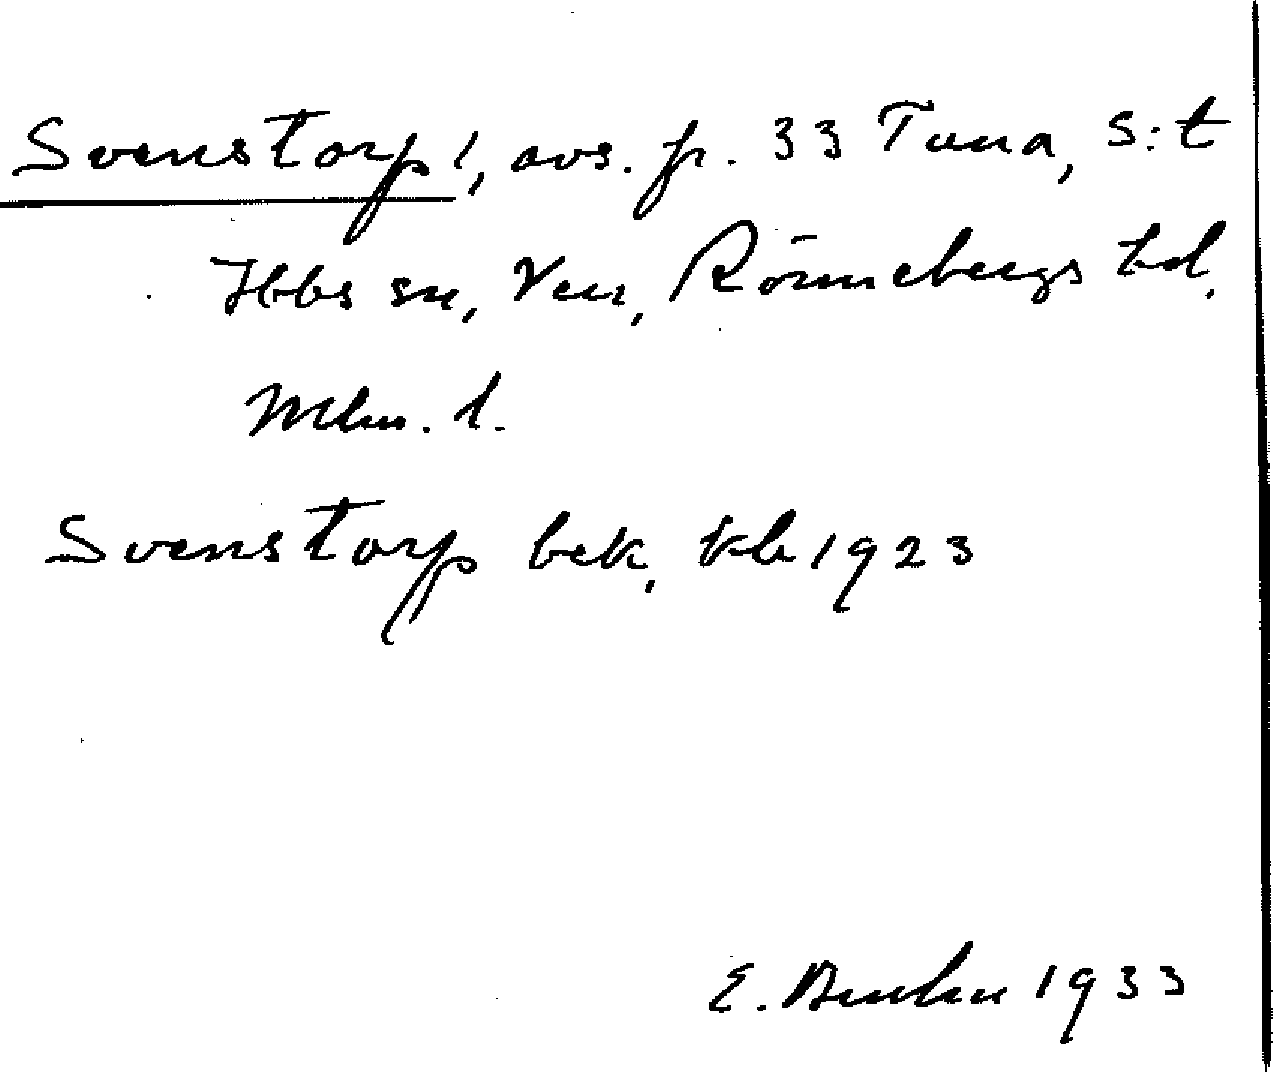 Svenstorp 1, avs. fr. 33 Tuna, S:t
Ibbs sn, Ven, Rönnebergs hd,
Mlm. l.
Svenstorp bek, kb 1923
E. 1933